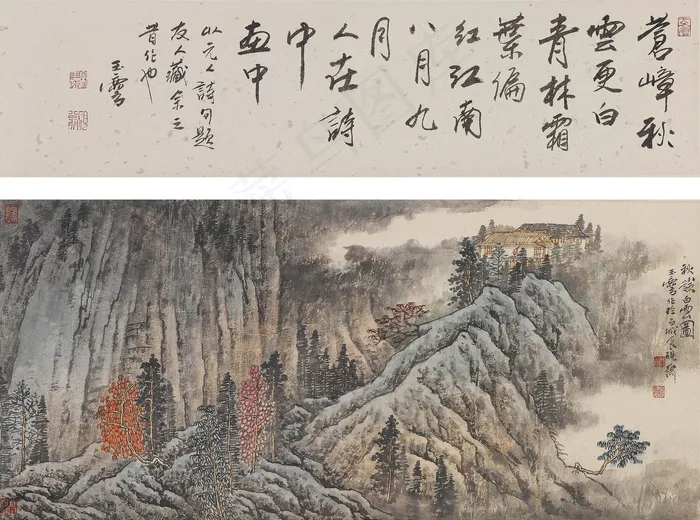 蒼嶂秋
雲更白
青林霜
葉偏
紅江南
八月九
月
人在詩
中
畫中
以元人詩句題
友人藏余之
昔作也
玉
秋嶺白雲圖
玉 作於石城